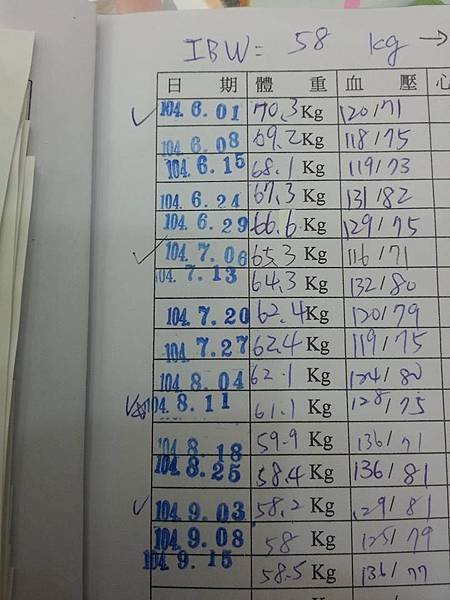 IBW = 58 kg →
日期 體重 血壓 心
104. 6. 01 70.3 Kg 120/71
104. 6. 08 69.2 Kg 118/75
104. 6. 15 68.1 Kg 119/73
104. 6. 24 67.3 Kg 131/82
104. 6. 29 66.6 Kg 129/75
104. 7. 06 65.3 Kg 116/71
104. 7. 13 64.3 Kg 132/80
104. 7. 20 62.4 Kg 120/79
104. 7. 27 62.4 Kg 119/75
104. 8. 04 62.1 Kg 124/80
104. 8. 11 61.1 Kg 128/75
104. 8. 18 59.9 Kg 136/71
104. 8. 25 58.4 Kg 136/81
104. 9. 03 58.2 Kg 129/81
104. 9. 08 58 Kg 125/79
104. 9. 15 58.5 Kg 136/77